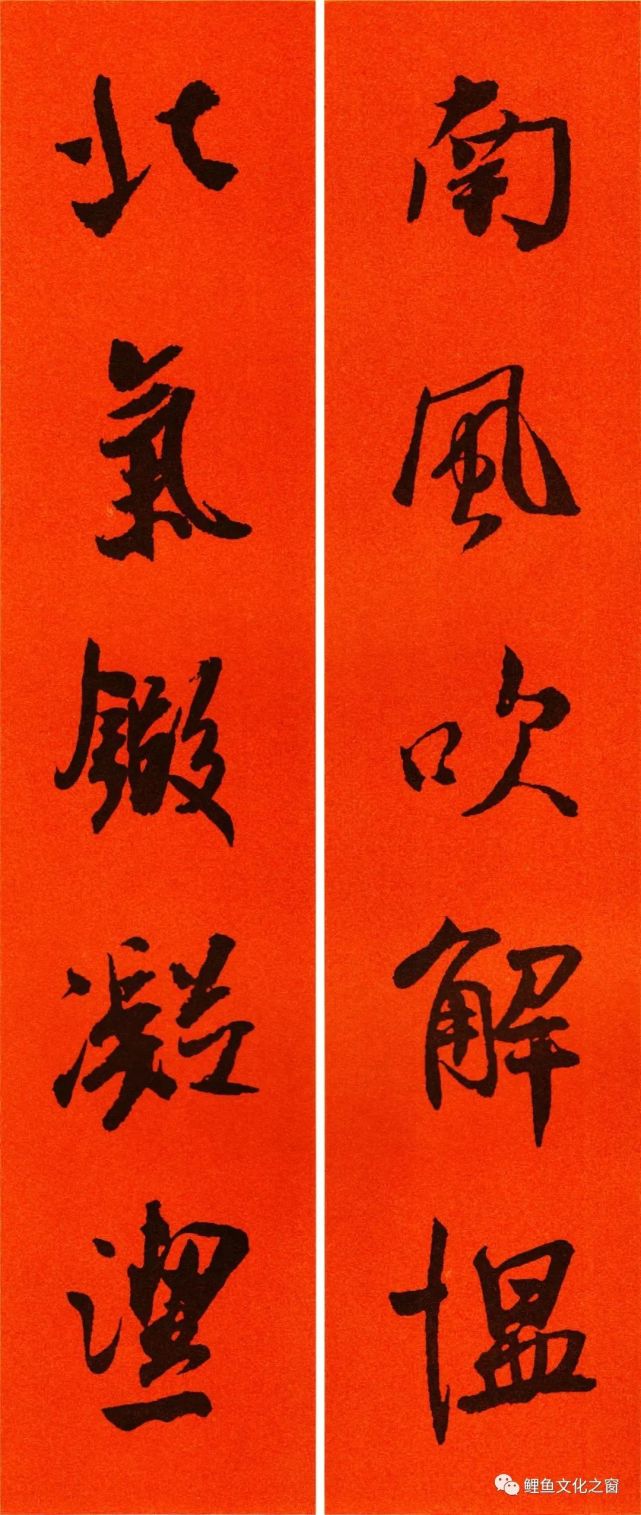 南風吹解慍
北氣鍛凝
鲤鱼文化之窗